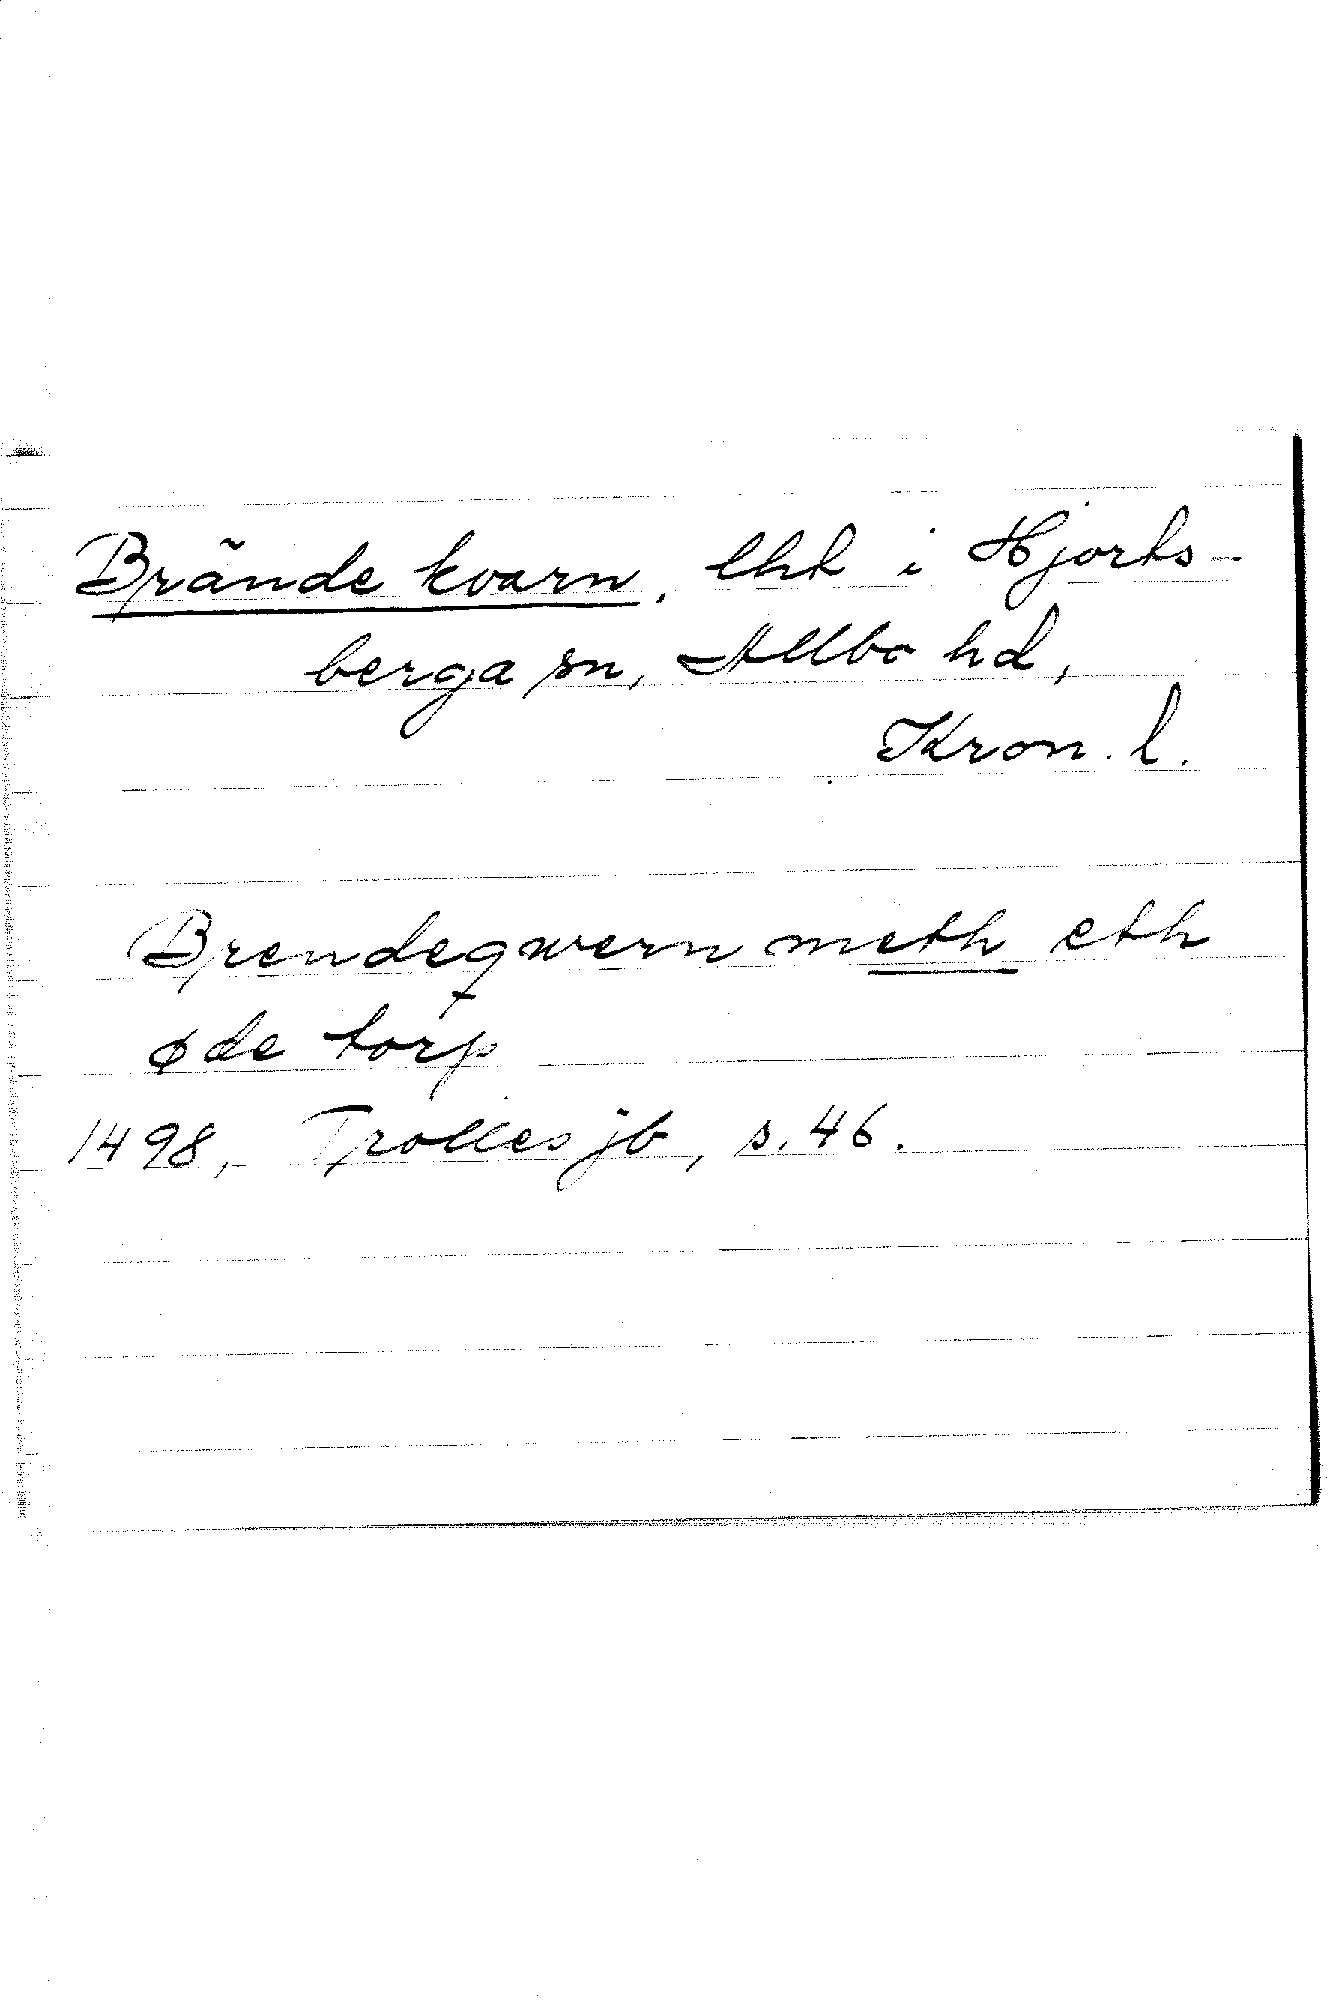 Brände kvarn, lht i Hjorts-
berga sn, Allbo hd,
Kron. l.
Brendeqwern meth eth
øde torp
1498, Trolles jb, s. 46.